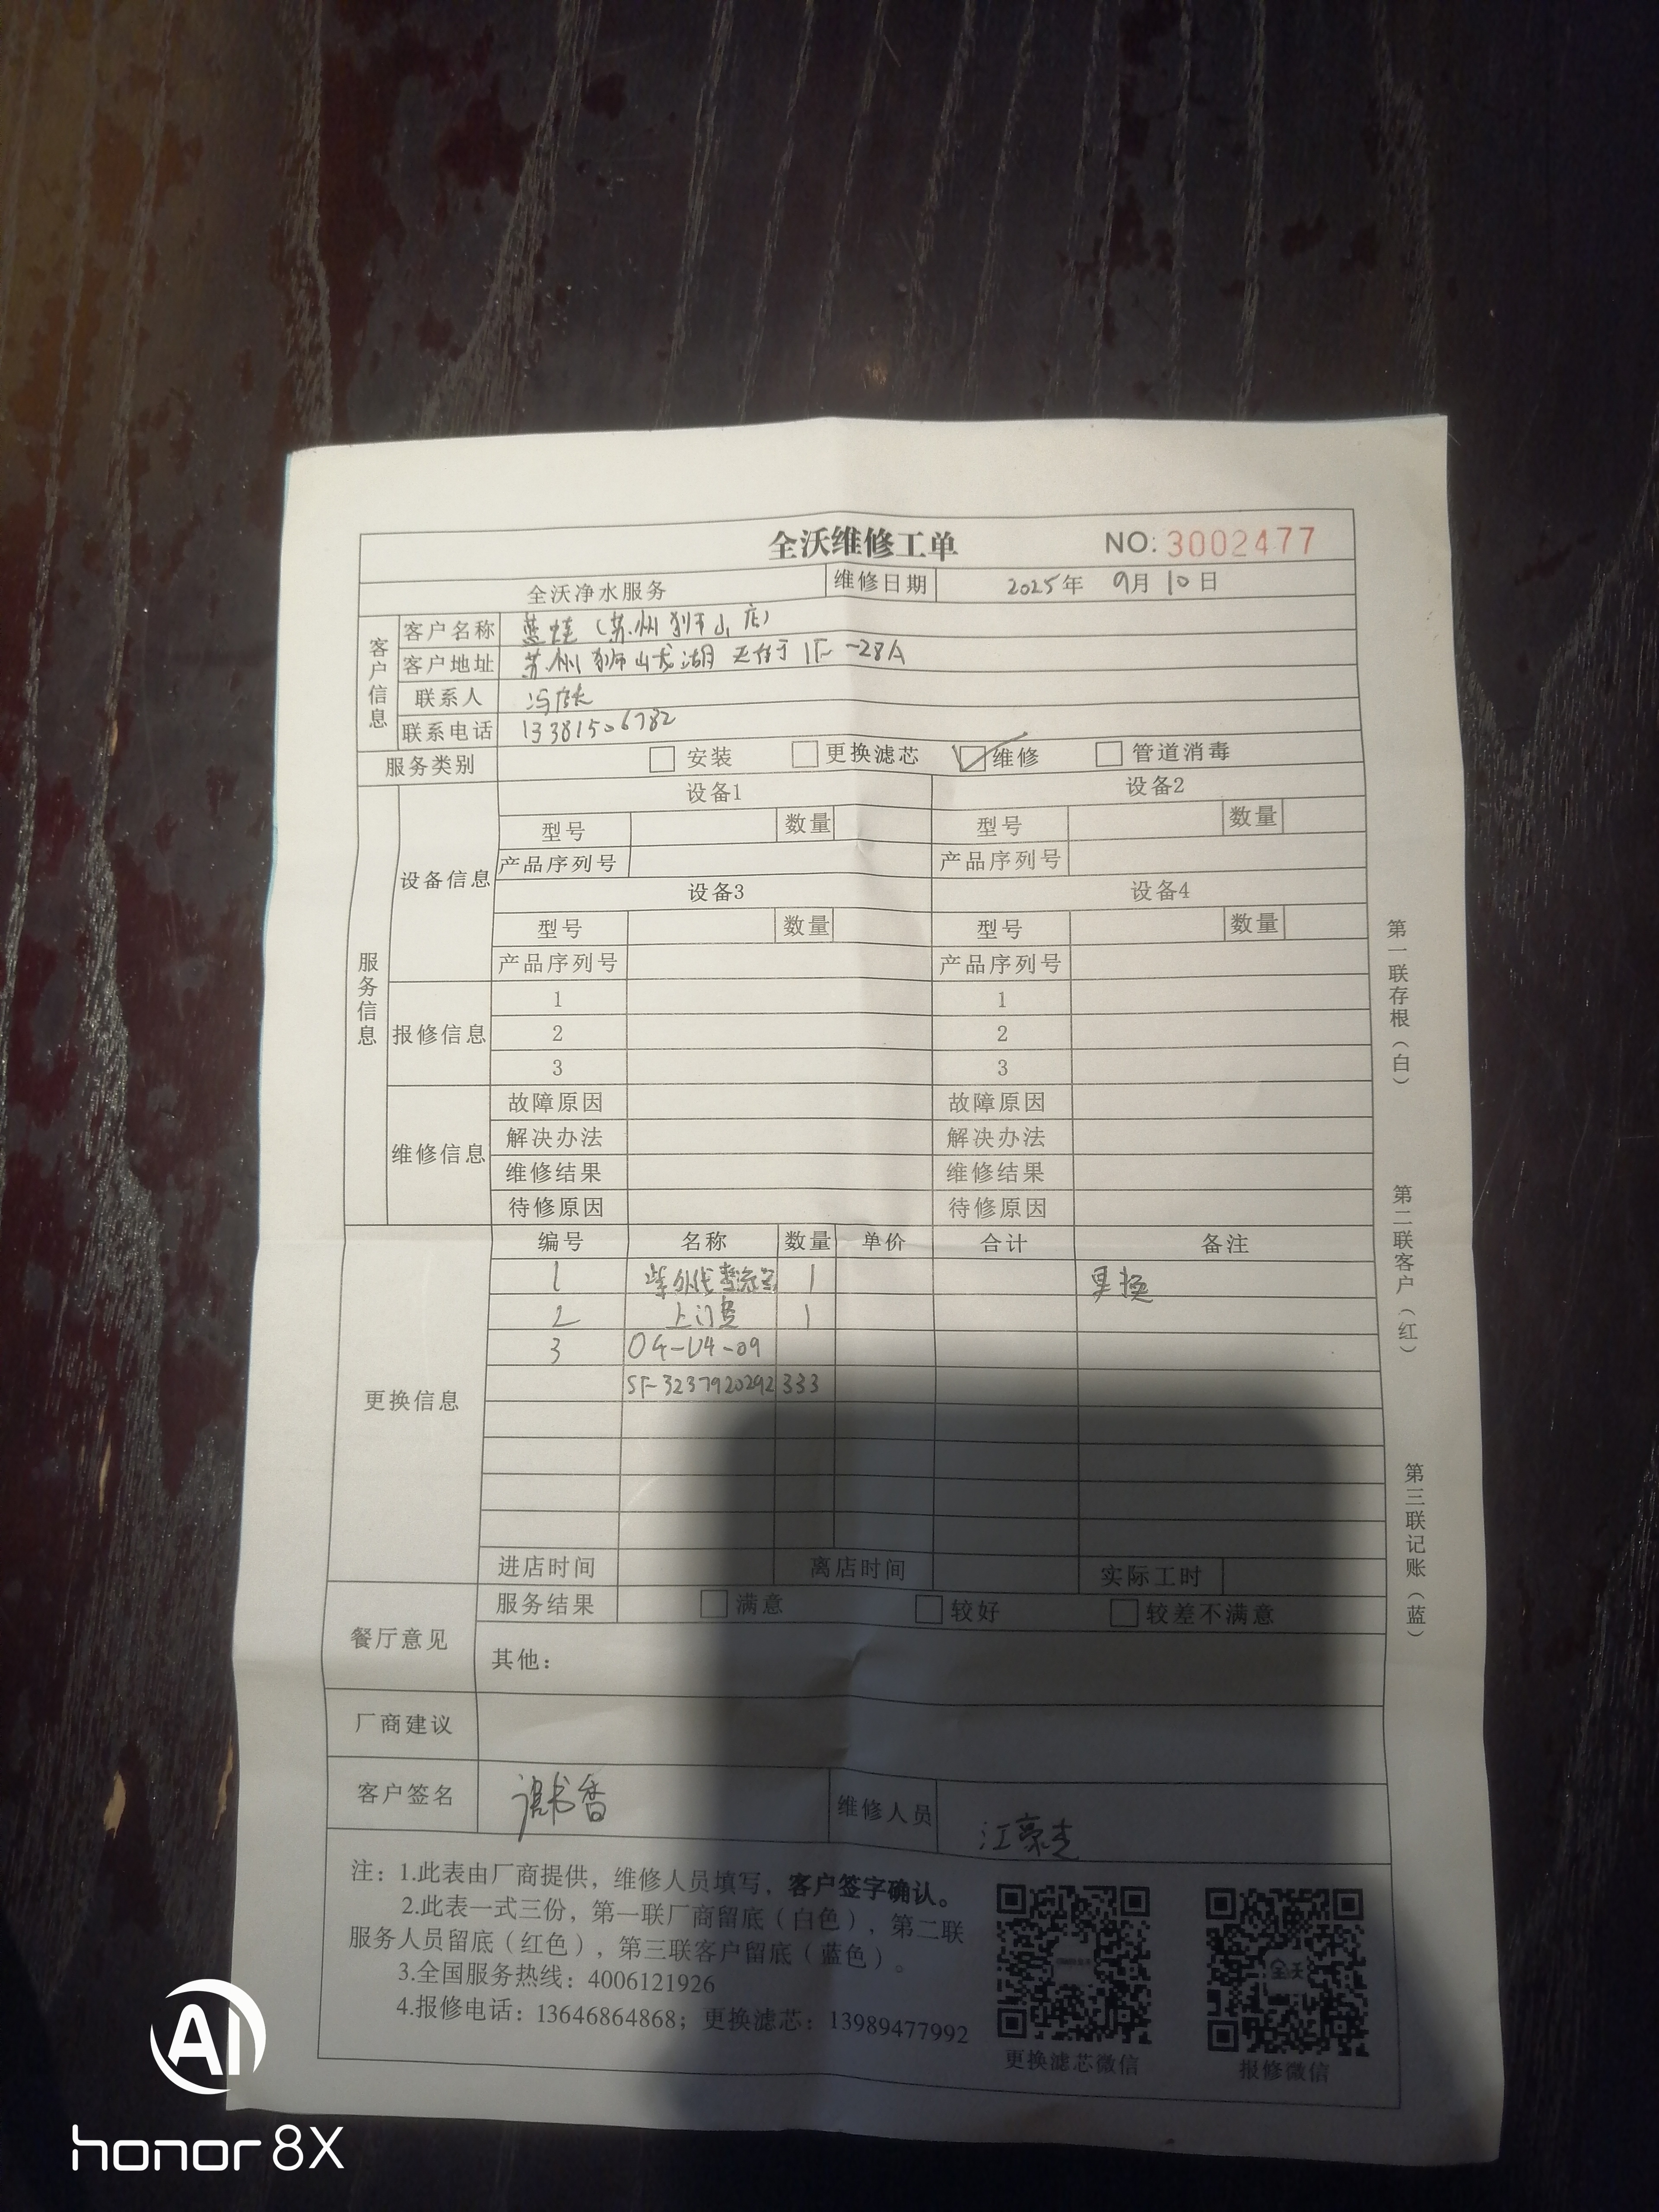 全沃维修工单 NO: 3002477
全沃净水服务 维修日期 2025年 9月 10日
客户信息
客户名称 蓝蛙（苏州狮山店）
客户地址 苏州狮山龙湖天街 1F-28A
联系人 冯店长
联系电话 13381506782
服务类别 安装 更换滤芯 维修 管道消毒
服务信息
设备信息
设备1 设备2
型号 数量 型号 数量
产品序列号 产品序列号
设备3 设备4
型号 数量 型号 数量
产品序列号 产品序列号
报修信息
1 1
2 2
3 3
维修信息
故障原因 故障原因
解决办法 解决办法
维修结果 维修结果
待修原因 待修原因
更换信息
编号 名称 数量 单价 合计 备注
1 紫外线 1 更换
2 上门费 1
3 04-U4-09
SF-3237920292333
进店时间 离店时间 实际工时
餐厅意见
服务结果 满意 较好 较差不满意
其他：
厂商建议
客户签名 书香 维修人员 江豪杰
注：1.此表由厂商提供，维修人员填写，客户签字确认。
2.此表一式三份，第一联厂商留底（白色），第二联
服务人员留底（红色），第三联客户留底（蓝色）。
3.全国服务热线：4006121926
4.报修电话：13646864868；更换滤芯：13989477992
更换滤芯微信 报修微信
全沃
第一联存根（白）
第二联客户（红）
第三联记账（蓝）
AI
honor 8X